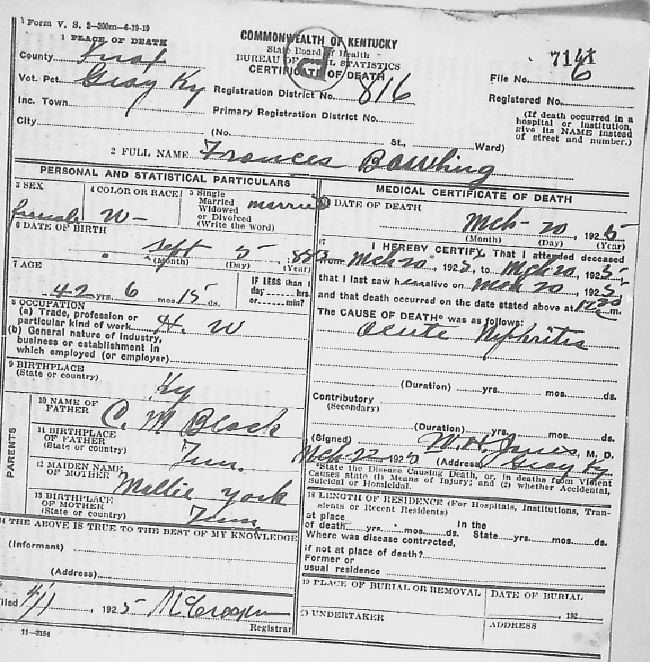 Form V. S. 2—300m—6-19-19
COMMONWEALTH OF KENTUCKY
State Board of Health
BUREAU OF VITAL STATISTICS
CERTIFICATE OF DEATH
1 PLACE OF DEATH
County Knox
Vot. Pct. Gray Ky
Inc. Town
City
Registration District No. 816
Primary Registration District No.
File No.
Registered No.
(If death occurred in a hospital or institution, give its NAME instead of street and number.)
(No. St., Ward)
2 FULL NAME Frances Bowling
PERSONAL AND STATISTICAL PARTICULARS
3 SEX
female
4 COLOR OR RACE
W-
5 Single
Married
Widowed
or Divorced
(Write the word)
married
6 DATE OF BIRTH
Sept 5
(Month) (Day) (Year)
7 AGE
42 yrs. 6 mos. 15 ds.
IF LESS than 1
day hrs.
or min.?
8 OCCUPATION
(a) Trade, profession or
particular kind of work H. W
(b) General nature of industry,
business or establishment in
which employed (or employer)
9 BIRTHPLACE
(State or country)
Ky
PARENTS
10 NAME OF
FATHER
C. M Black
11 BIRTHPLACE
OF FATHER
(State or country)
Tenn.
12 MAIDEN NAME
OF MOTHER
Mollie York
13 BIRTHPLACE
OF MOTHER
(State or country)
Tenn
14 THE ABOVE IS TRUE TO THE BEST OF MY KNOWLEDGE
(Informant)
(Address)
Filed 4/11, 1925
Registrar
11—3184
MEDICAL CERTIFICATE OF DEATH
DATE OF DEATH
Mch 20, 1925
(Month) (Day) (Year)
17
I HEREBY CERTIFY, That I attended deceased
from Mch 20, 1925, to Mch 20, 1925
that I last saw h alive on Mch 20, 1925
and that death occurred on the date stated above at m.
The CAUSE OF DEATH* was as follows:
Acute Nephritis
(Duration) yrs. mos. ds.
Contributory
(Secondary)
(Duration) yrs. mos. ds.
(Signed) W. H. Jones, M. D.
Mch 22 192 (Address) Gray Ky
*State the Disease Causing Death, or, in deaths from Violent
Causes state (1) Means of Injury; and (2) whether Accidental,
Suicidal or Homicidal.
18 LENGTH OF RESIDENCE (For Hospitals, Institutions, Transients or Recent Residents)
at place In the
of death yrs. mos. ds. State yrs. mos. ds.
Where was disease contracted,
if not at place of death?
Former or
usual residence
19 PLACE OF BURIAL OR REMOVAL
DATE OF BURIAL
192
20 UNDERTAKER
ADDRESS